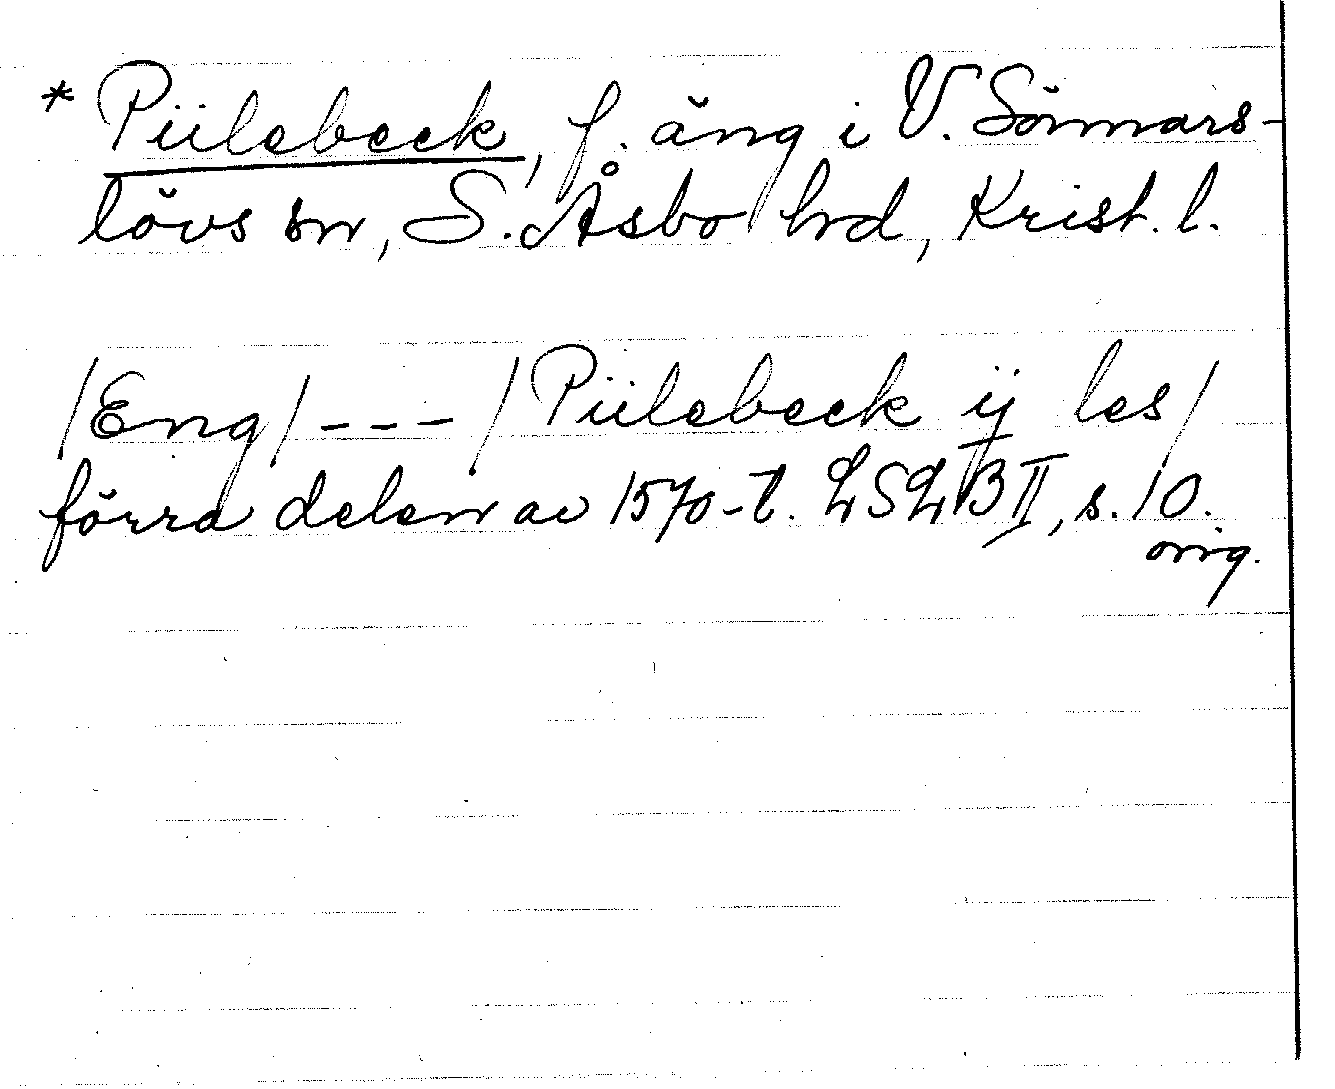 * Piilebeck, f. äng i V. Sönnars-
lövs sn, S. Åsbo hd, Krist. l.
/Eng/ --- / Piilebeck ij les/
förra delen av 1570-t. LSLB II, s. 10.
orig.